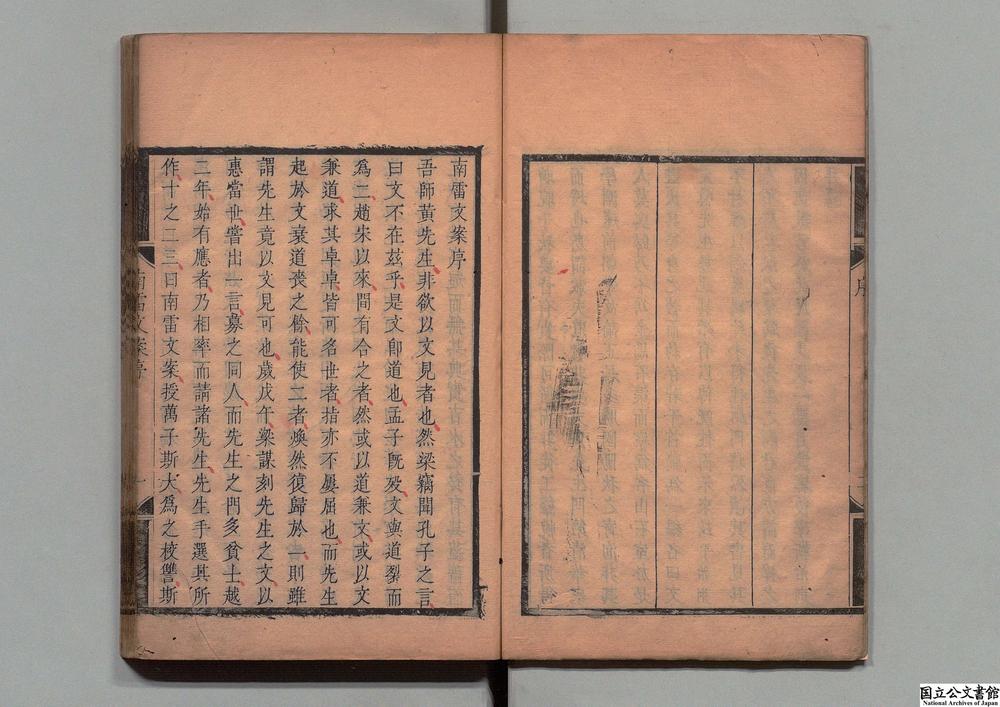 序
南雷文案序
吾師黃先生非欲以文見者也然梁竊聞孔子之言
曰文不在茲乎是文卽道也孟子旣歿文與道裂而
爲二趙宋以來間有合之者然或以道兼文或以文
兼道求其卓卓皆可名世者指亦不屢屈也而先生
起於文衰道喪之餘能使二者煥然復歸於一則雖
謂先生竟以文見可也歲戊午梁謀刻先生之文以
惠當世嘗出一言募之同人而先生之門多貧士越
二年始有應者乃相率而請諸先生先生手選其所
作十之二三曰南雷文案授萬子斯大爲之校讐斯
南雷文案序
一
国立公文書館
National Archives of Japan